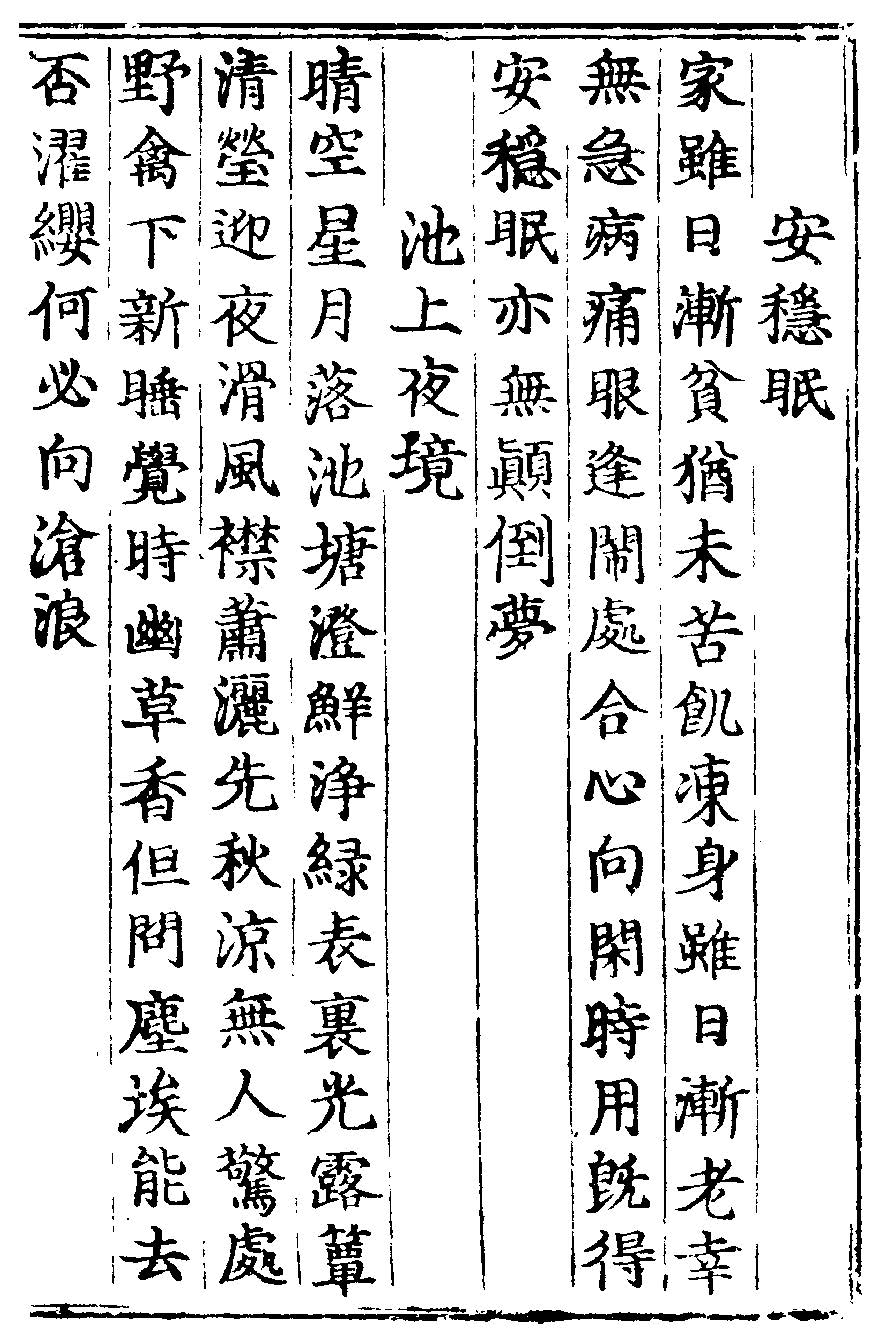 安穩眠
家雖日漸貧猶未苦飢凍身雖日漸老幸
無急病痛眼逢鬧處合心向閑時用旣得
安穩眠亦無顚倒夢
池上夜境
晴空星月落池塘澄鮮淨綠表裏光露簟
清瑩迎夜滑風襟蕭灑先秋涼無人驚處
野禽下新睡覺時幽草香但問塵埃能去
否濯纓何必向滄浪